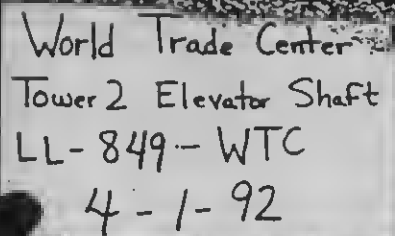 World Trade Center
Tower 2 Elevator Shaft
LL-849-WTC
4-1-92